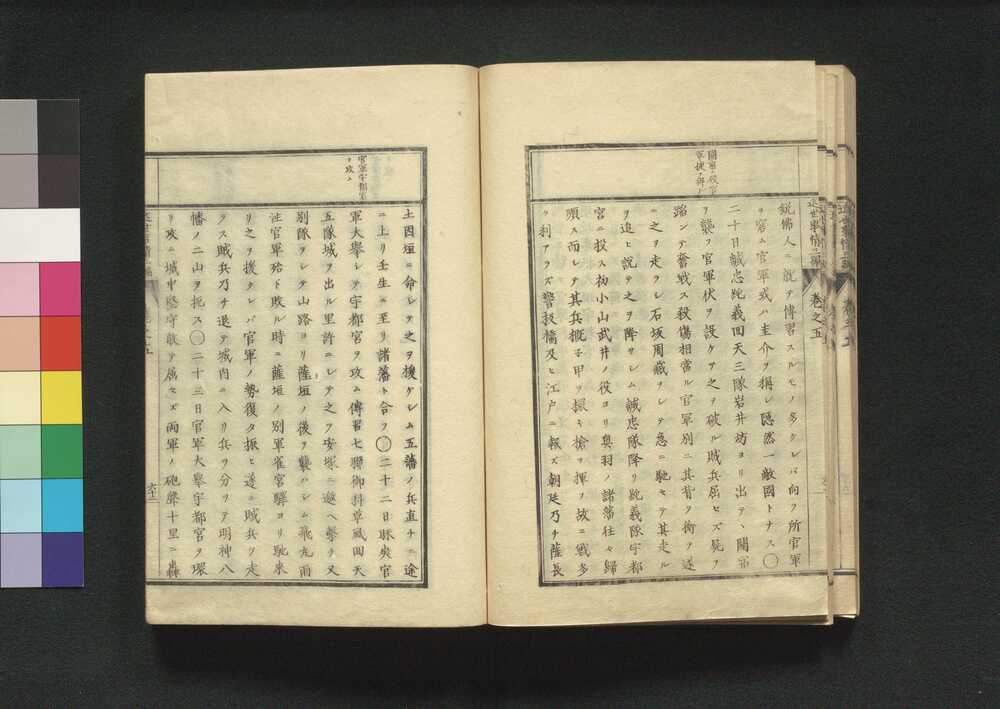 近世事情二編 巻之五
關宿ノ役官
軍捷ヲ得ル
鋭佛人ニ就テ傳習スルモノ多クレバ向フ所官軍
ヲ窘ム官軍或ハ圭介ヲ稱シ隠然一敵國トナス〇
二十日誠忠純義回天三隊岩井坊ヨリ出テ、關宿
ヲ襲フ官軍伏ヲ設ケ之ヲ破ル賊兵屈セズ屍ヲ
踏ンテ奮戰ス殺傷相當ル官軍別ニ其背ヲ衝ヲ遂
ニ之ヲ走ラシ石坂周藏ヲシテ急ニ馳セテ其走ル
ヲ追ヒ説テ之ヲ降サシム誠忠隊降リ純義隊宇都
宮ニ投ス初小山武井ノ役ヨリ奥羽ノ諸藩往々歸
順ス而シテ其兵概子甲ヲ擐キ槍ヲ揮フ故ニ戰多
ク利アラズ警板橋及ヒ江戸ニ報ズ朝廷乃チ薩長
官軍宇都宮
ヲ攻ム
土因垣ニ命シテ之ヲ援ケシム五藩ノ兵直チニ途
ニ上リ壬生ニ至リ諸藩ト合フ〇二十二日昧爽官
軍大擧シテ宇都宮ヲ攻ム傳習七聯御料草風回天
五隊城ヲ出ル里許ニシテ之ヲ安塚ニ邀ヘ撃ヲ又
別隊ヲシテ山路ヨリ薩垣ノ後ヲ襲ハシム飛丸雨
注官軍殆ト敗ル時ニ薩垣ノ別軍雀宮驛ヨリ馳來
リ之ヲ援クレバ官軍ノ勢復タ振ヒ遂ニ賊兵ヲ走
ラス賊兵乃チ退テ城内ニ入リ兵ヲ分ヲテ明神八
幡ノ二山ヲ扼ス〇二十三日官軍大擧宇都宮ヲ環
リ攻ム城中堅守敢テ屈セズ兩軍ノ砲聲十里ニ轟